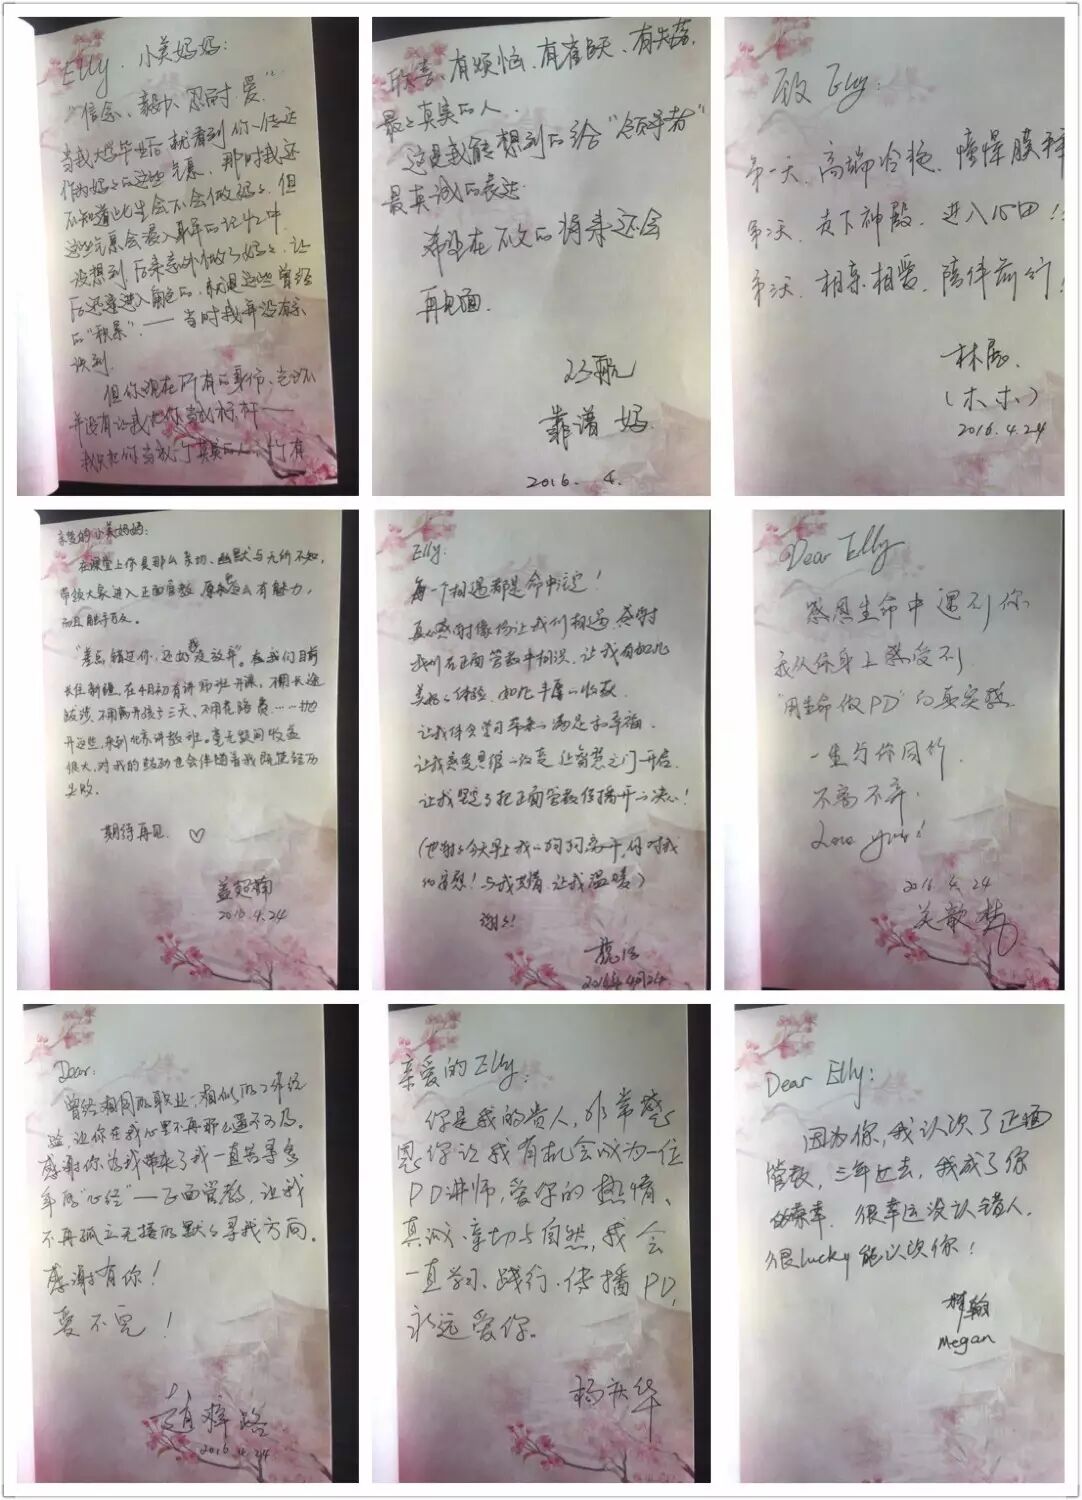 Elly. 小美妈妈:
"信念、毅力、忍耐、爱"
当我大学毕业后就看到你一传达
作为妈妈的这些气愿,那时我还
不知道此生会不会做妈妈,但
这些气愿会浸入身体的记忆中.
没想到,后来意外做了妈妈,让
后还来进入角色的,就是这些曾经
的"积累"——当时我并没有意
识到.
但你现在所有的身份、光环
并没有让我把你当成标杆——
我只把你当成一个真实的人,一个有
欣喜、有烦恼、有崔跃、有失落,
最最真实的人.
这是我能想到的给"领导者"
最真诚的表达.
希望在不久的将来还会
再见面.
靠谱妈.
2016. 4.
致 Elly:
第一天,高端冷艳,憧憬膜拜
第二天,走下神殿,进入心田!
第三天,相亲相爱,陪伴前行!
林展.
(木木)
2016.4.24
亲爱的小美妈妈:
在课堂上你是那么亲切、幽默与无所不知,
带领大家进入正面管教,原来怎么有魅力,
而且触手可及.
"差点错过你,还好没放弃"。在我们目前
长住新疆,在4月初有讲师班开课,不用长途
跋涉、不用离开孩子三天、不用花路费……抛
开这些,来到北京讲教班。毫无疑问收益
很大,对我的鼓励也会伴随着我既使经历
失败.
期待再见. ♡
盖超楠
2016.4.24
Elly:
每一个相遇都是命中注定!
真心感谢缘份让我们相遇,感谢
我们在正面管教中相识,让我有如此
美好的体验,如此丰厚的收获.
让我体会学习带来的满足和幸福.
让我感受思维的改变,让智慧之门开启.
让我坚定了把正面管教传播开的决心!
(也谢谢今天早上我的匆匆离开,你对我
的拥抱!与我共情,让我温暖)
谢谢!
2016年4月24
Dear Elly
感恩生命中遇到你
我从你身上感受到
"用生命做PD"的真实感.
一生与你同行
不离不弃.
Love you!
2016.4.24
关歆
Dear:
曾经相同的职业,相似的工作经
验,让你在我心里不再那么遥不可及。
感谢你为我带来了我一直苦寻多
年的"心经"——正面管教,让我
不再孤立无援的默默寻找方向。
感谢有你!
爱不完!
赵梓路
2016.4.24
亲爱的Elly:
你是我的贵人,非常感
恩你让我有机会成为一位
PD讲师,爱你的热情、
真诚、亲切与自然,我会
一直学习、践行、传播PD,
永远爱你。
杨庆华
Dear Elly:
因为你,我认识了正面
管教,三年过去,我成了你
的桑幸.很幸运没认错人,
很lucky能认识你!
翰
Megan